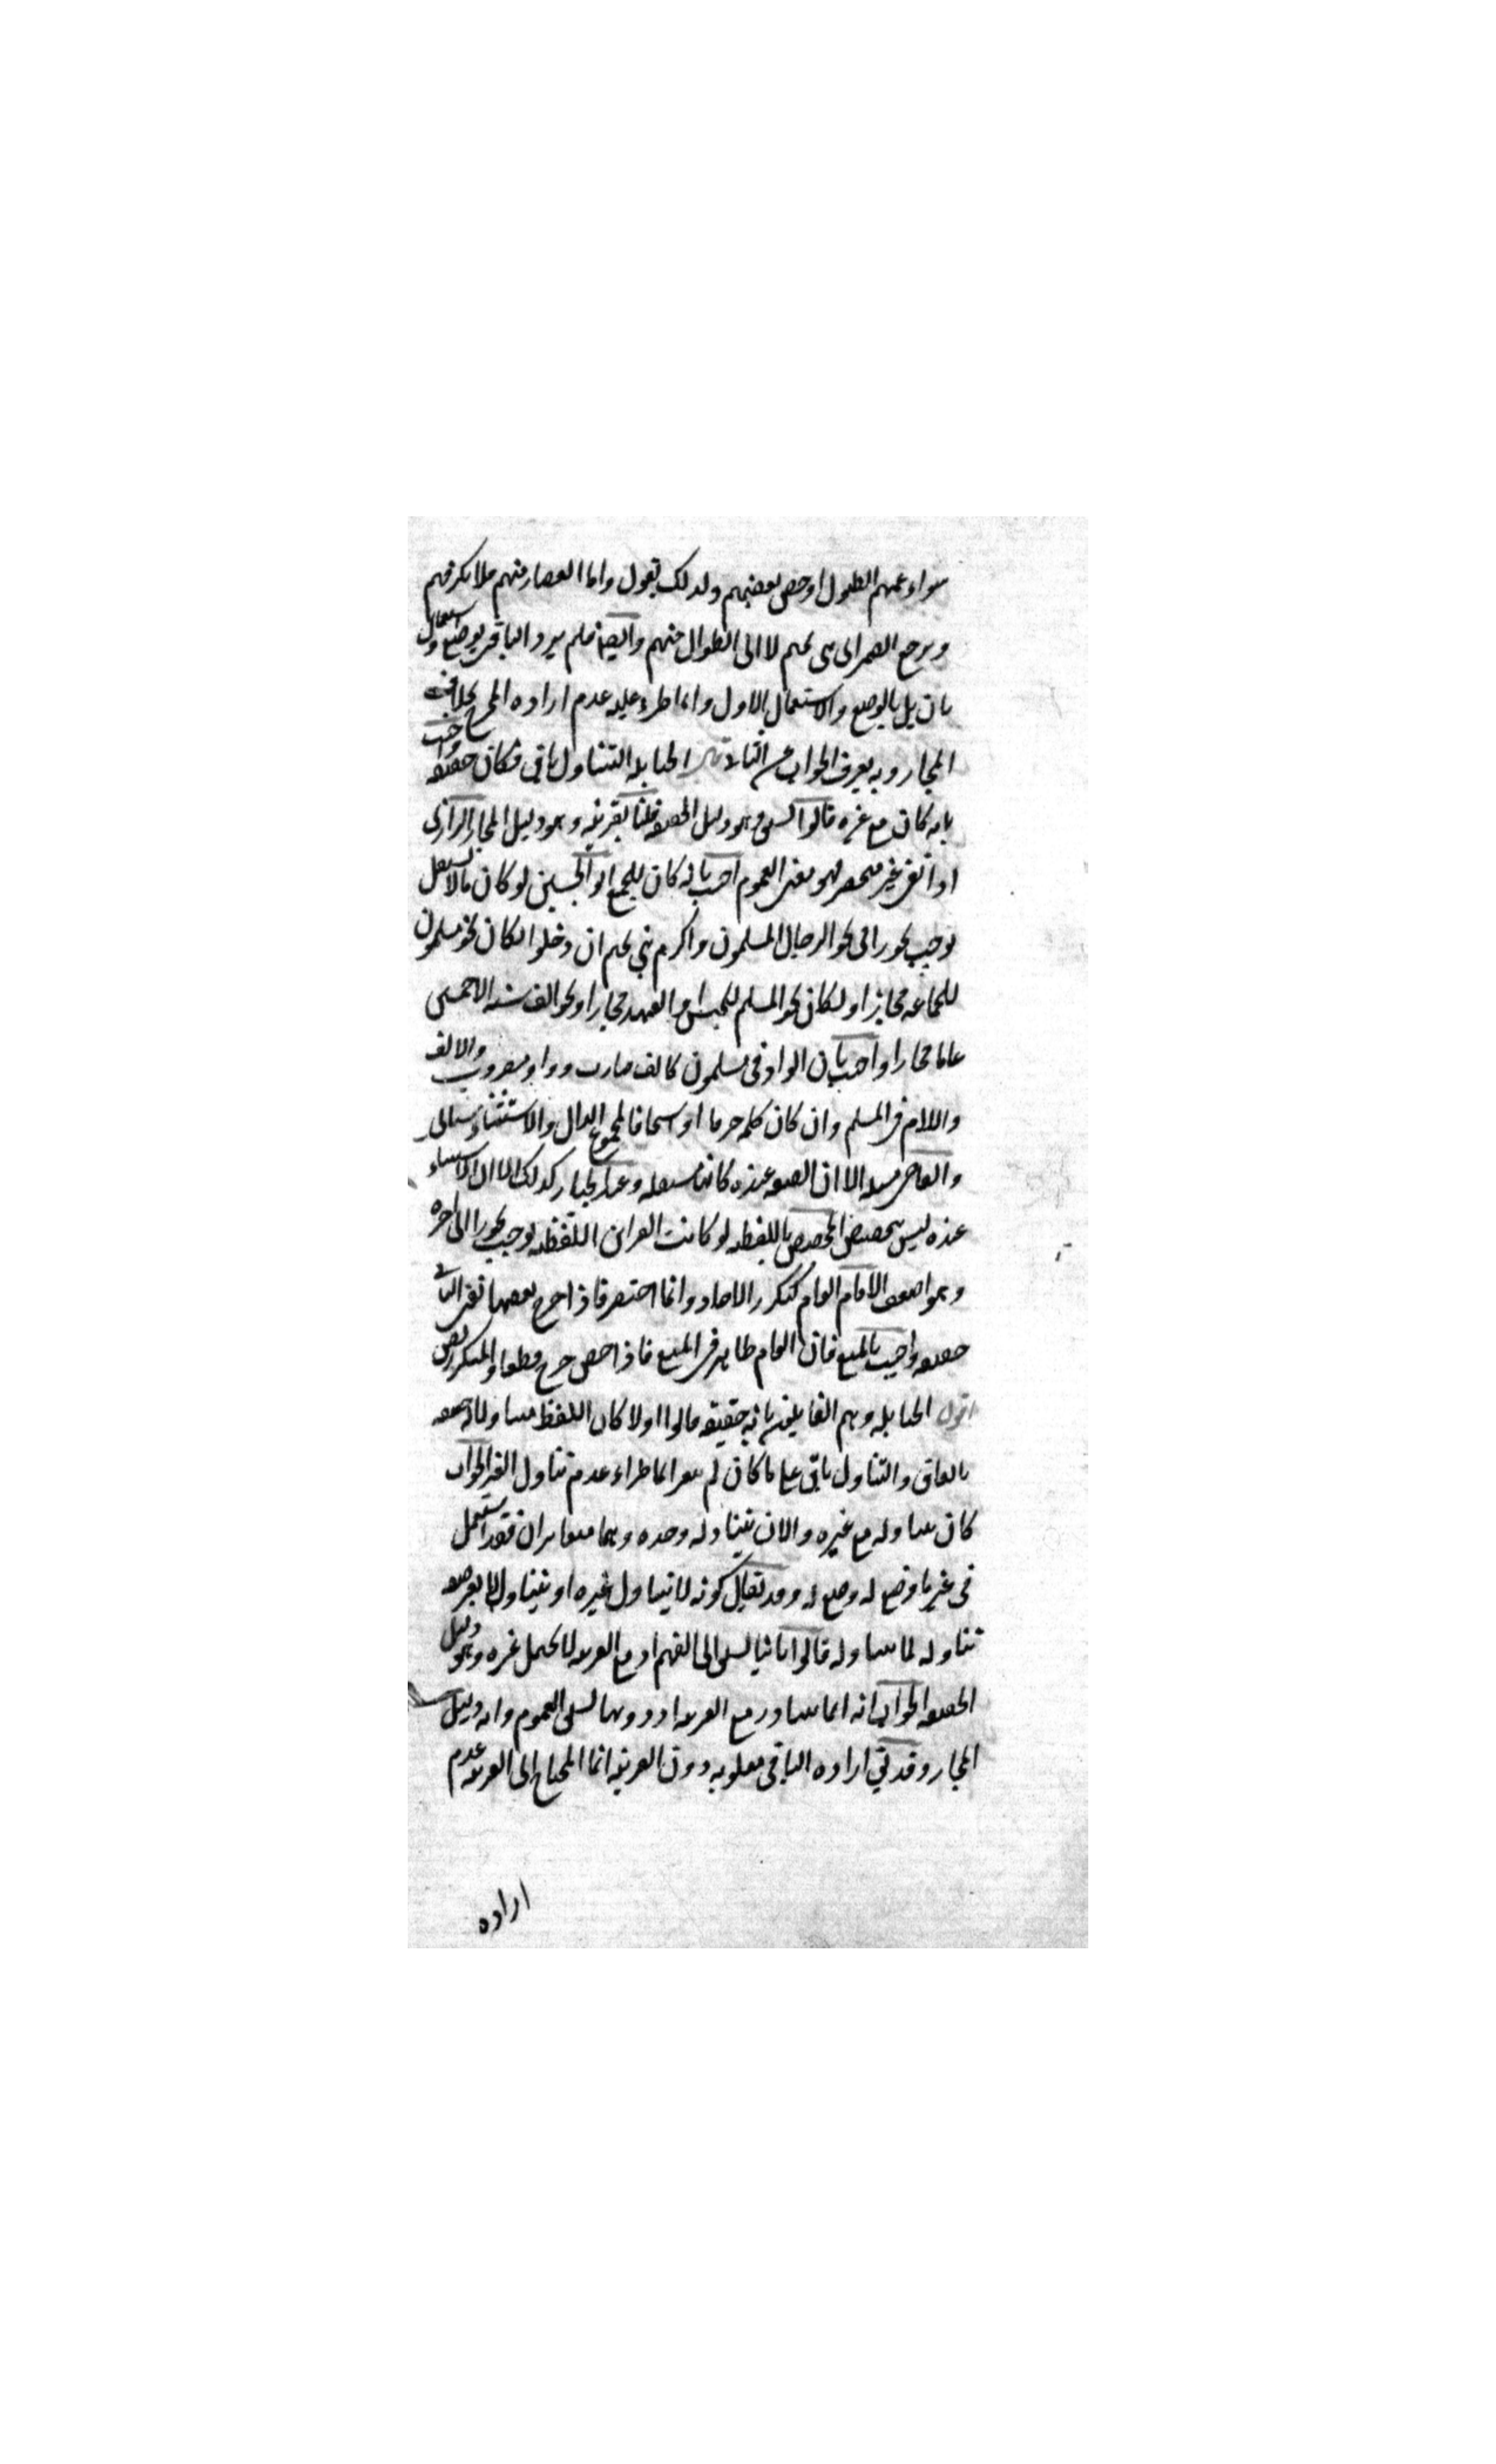 سواء عمهم الطول او خص بعضهم ولذلك تقول واما القصار منهم فلا نكرمهم
ويرجع الضمير الى بنى تميم لا الى الطوال منهم وايضا فلم يرد الباقى بوضع واستعمال
ثان بل بالوضع والاستعمال الاول وانما طرء عليه عدم ارادة المخرج بخلاف
المجاز وبه يعرف الجواب عن الثانى الحنابلة التناول باق فكان حقيقة واجيب
بانه كان مع غيره قالوا يسبق وهو دليل الحقيقة قلنا بقرينة وهو دليل المجاز الرازى
اذا بقى غير منحصر فهو معنى العموم اجيب بانه كان للجميع ابو الحسين لو كان ما لا يستقل
يوجب تجوزا فى نحو الرجال المسلمون واكرم بنى تميم ان دخلوا لكان نحو مسلمون
للجماعة مجازا ولكان نحو المسلم للجنس او العهد مجازا ونحو الف سنة الا خمسين
عاما مجازا واجيب بان الواو فى مسلمون كالف ضارب وواو مضروب والالف
واللام فى المسلم وان كان كلمة حرفا او اسما فالمجموع الدال والاستثناء سيأتى
والقاضى مثله الا ان الصفة عنده كانها مستقلة وعبد الجبار كذلك الا ان الاستثناء
عنده ليس بتخصيص المخصص باللفظية لو كانت القرائن اللفظية توجب تجوزا الى آخره
وهو اضعف الامام العام كتكرر الاحاد وانما اختصر فاذا خرج بعضها بقى الباقى
حقيقة واجيب بالمنع فان العام ظاهر فى الجميع فاذا خص خرج قطعا والمتكرر نص
اقول الحنابلة وهم القايلون بانه حقيقة قالوا اولا كان اللفظ متناولا له حقيقة
بالاتفاق والتناول باق على ما كان لم يتغير انما طراء عدم تناول الغير الجواب
كان يتناوله مع غيره والان يتناوله وحده وهما متغايران فقد استعمل
فى غير ما وضع له وقد يقال كونه لا يتناول غيره او يتناوله لا يغير صفة
تناوله لما يتناوله قالوا ثانيا يسبق الى الفهم اذ مع القرينة لا يحتمل غيره وهو دليل
الحقيقة الجواب انه انما يتبادر مع القرينة اذ دونها يسبق العموم وانه دليل
المجاز وقد يقال ارادة الباقى معلومة دون القرينة انما المحتاج الى القرينة عدم
ارادة